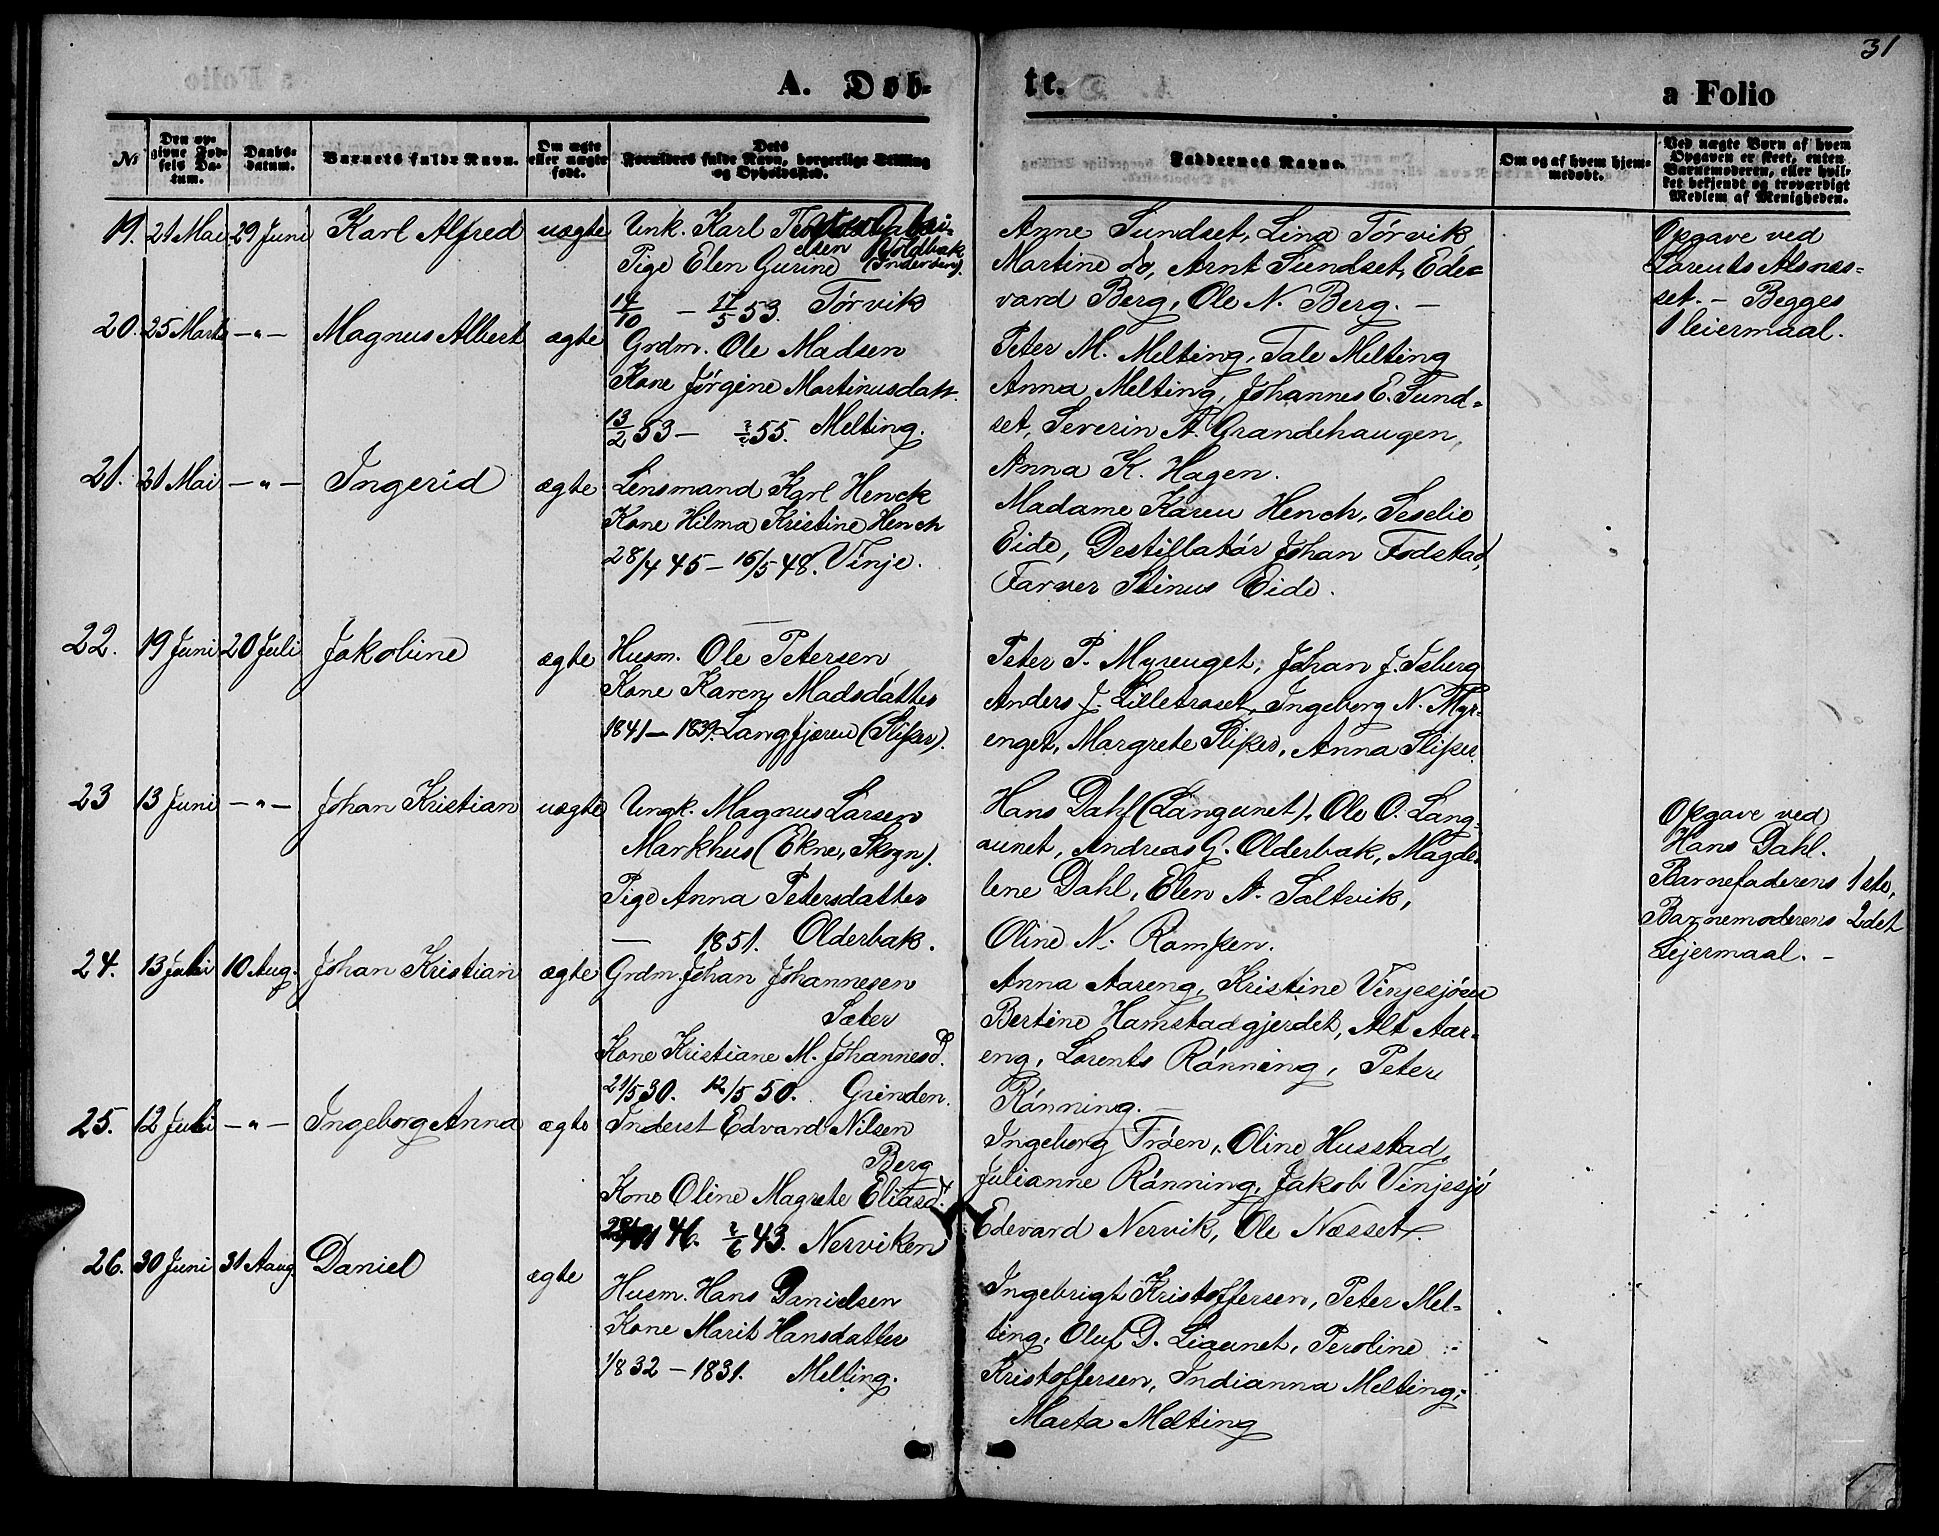 31
A. Døb-
te.
a Folio
No
Den op-
givne Fød-
sels Da-
tum.
Daabs-
datum.
Barnets fulde Navn.
Om ægte
eller uægte
født.
Dets
Forældres fulde Navn, borgerlige Stilling
og Opholdssted.
Faddernes Navne.
Om og af hvem hjem-
medøbt.
Ved uægte Børn af hvem
Opgaven er skeet, enten
Barnemoderen, eller hvil-
ket bekjendt og troværdigt
Medlem af Menigheden.
19. 21 Mai 29 Juni Karl Alfred uægte Unk. Karl
elsen Holdbak
Pige Elen Gurine (Inderøen).
14/10 - 17/5 53. Tørvik
Anne Sundset, Lina Tørvik,
Martine do, Arnt Sundset, Ede-
vard Berg, Ole N. Berg. -
Opgave ved
Lorents Alsnæs-
set. - Begges
1 leiermaal.
20. 25 Marts -"- Magnus Albert ægte Grdm. Ole Madsen
Kone Jørgine Martinusdatt.
13/2 53 - ?/? 55. Melting.
Peter M. Melting, Tale Melting
Anna Melting, Johannes E. Sund-
set, Severin A. Grandehaugen,
Anna K. Hagen.
21. 21 Mai -"- Ingerid ægte Lensmand Karl Henck
Kone Hilma Kristine Hench
28/4 45 - 16/5 48. Vinje.
Madame Karen Hench, Seselie
Eide, Destillatør Johan Fodstad,
Farver Stinus Eide.
22. 19 Juni 20 Juli Jakobine ægte Husm. Ole Petersen
Kone Karen Madsdatter
1841 - 1839. Langfjæren (Sliper).
Peter P. Myrenget, Johan J. Isberg
Anders J. Lilletraset, Ingeborg N. Myr-
enget, Margrete Sliper, Anna Sliper.
23 13 Juni -"- Johan Kristian uægte Ungk. Magnus Larsen
Markhus (Ekne, Skogn).
Pige Anna Petersdatter
- 1851. Olderbak.
Hans Dahl (Langunet), Ole O. Lang-
aunet, Andreas G. Olderbak, Magde-
lene Dahl, Elen A. Saltvik,
Oline N. Ramsen.
Opgave ved
Hans Dahl.
Barnefaderens 1ste,
Barnemoderens 2det
Lejermaal. -
24. 13 Juli 10 Aug. Johan Kristian ægte Grdm. Johan Johannesen
Sæter
Kone Kristiane M. Johannesd.
21/5 30. 12/5 50. Grinden.
Anna Aareng, Kristine Vinjesjøen
Bertine Hamstadgjerdet, Alt Aar-
eng, Lorents Rønning, Peter
Rønning. -
25. 12 Juli -"- Ingeborg Anna ægte Inderst Edvard Nilsen
Berg
Kone Oline Magrete Eliasd.
46. ?/6 43. Nerviken
Ingeborg Trøen, Oline Husstad,
Julianne Rønning, Jakob Vinjesjø
Edevard Nervik, Ole Næsset.
26. 30 Juni 31 Aaug. Daniel ægte
Husm. Hans Danielsen
Kone Marit Hansdatter
1/8 32 - 1831. Melting.
Ingebrigt Kristoffersen, Peter Mel-
ting, Oluf D. Liaunet, Peroline
Kristoffersen, Indianna Melting,
Marta Melting